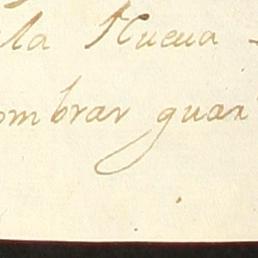 la Nueua
ombrar guar